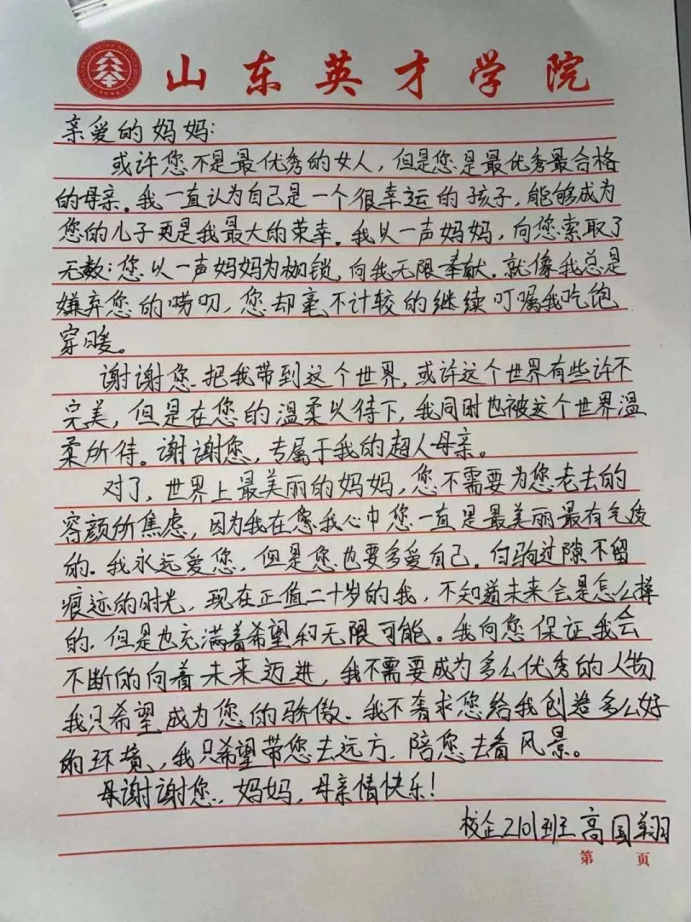 山东英才学院
亲爱的妈妈:
或许您不是最优秀的女人，但是您是最优秀最合格
的母亲。我一直认为自己是一个很幸运的孩子，能够成为
您的儿子更是我最大的荣幸。我以一声妈妈，向您索取了
无数;您以一声妈妈为枷锁，向我无限奉献。就像我总是
嫌弃您的唠叨，您却毫不计较的继续叮嘱我吃饱
穿暖。
谢谢您把我带到这个世界，或许这个世界有些许不
完美，但是在您的温柔以待下，我同时也被这个世界温
柔所待。谢谢您，专属于我的超人母亲。
对了，世界上最美丽的妈妈，您不需要为您老去的
容颜所焦虑，因为我在您我心中您一直是最美丽最有气质
的。我永远爱您，但是您也要多爱自己。白驹过隙不留
痕迹的时光，现在正值二十岁的我，不知道未来会是怎么样
的，但是也充满着希望和无限可能。我向您保证我会
不断的向着未来迈进，我不需要成为多么优秀的人物
我只希望成为您的骄傲、我不奢求您给我创造多么好
的环境，我只希望带您去远方、陪您去看风景。
母谢谢您，妈妈，母亲情快乐！
校企2101班 高国翔
第 页